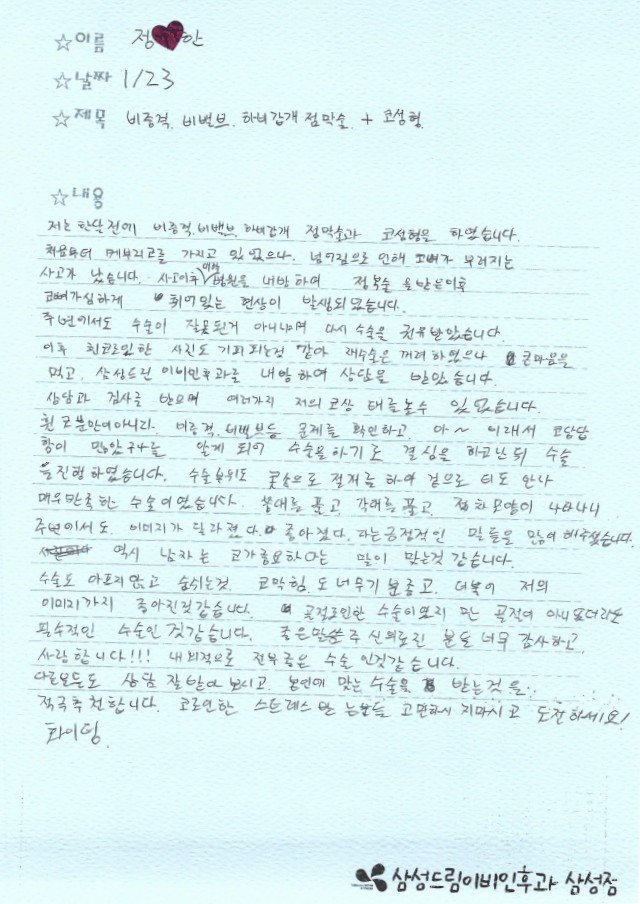 ☆이름 정♥안
☆날짜 1/23
☆제목 비중격, 비밸브, 하비갑개 점막술, + 코성형
☆내용
저는 한달전에 비중격, 비밸브, 하비갑개 점막술과 코성형을 하였습니다.
처음부터 메부리코를 가지고 있었으나. 넘어짐으로 인해 코뼈가 부러지는
사고가 났습니다. 사고이후 병원을 내방하여 정복술을 받은이후
코뼈가심하게 휘어있는 현상이 발생되었습니다.
주변에서도 수술이 잘못된거 아니냐며 다시 수술을 권유받았습니다
이후 휜코로인한 사진도 기피되는것 같아 재수술은 꺼려하였으나 큰마음을
먹고, 삼성드림이비인후과를 내방하여 상담을 받았습니다.
상담과 검사를 받으며 여러가지 저의코상태를볼수 있었습니다.
휜코뿐만이아니라. 비중격, 비밸브등 문제를 확인하고, 아~ 이래서 코답답
함이 많았구나를 알게 되어 수술을하기로 결심을 하고난뒤 수술
을진행하였습니다. 수술부위도 콧속으로 절개를 하여 겉으로 티도 안나
매우만족한 수술이였습니다. 붕대를 풀고 각대를 풀고, 점차모양이 나타나니
주변에서도 이미지가 달라졌다. 좋아졌다. 라는긍정적인 말들을 많이 해주셨습니다.
역시 남자는 코가중요하다는 말이 맞는것 같습니다.
수술도 아프지않고 숨쉬는것, 코막힘도 너무기분좋고, 더욱이 저의
이미지까지 좋아진것같습니다. 곡절로인한 수술이였지만 골절이 아니였더라도
필수적인 수술인것같습니다. 좋은말씀주신의료진 분들 너무 감사하고
사랑합니다!!! 내외적으로 전부좋은 수술 인것같습니다.
다른분들도 상담 잘받아보시고, 본인에 맞는수술을 받는것을
적극추천합니다. 코로인한 스트레스받는분들 고민하시지마시고 도전하세요!
화이팅.
삼성드림이비인후과 삼성점